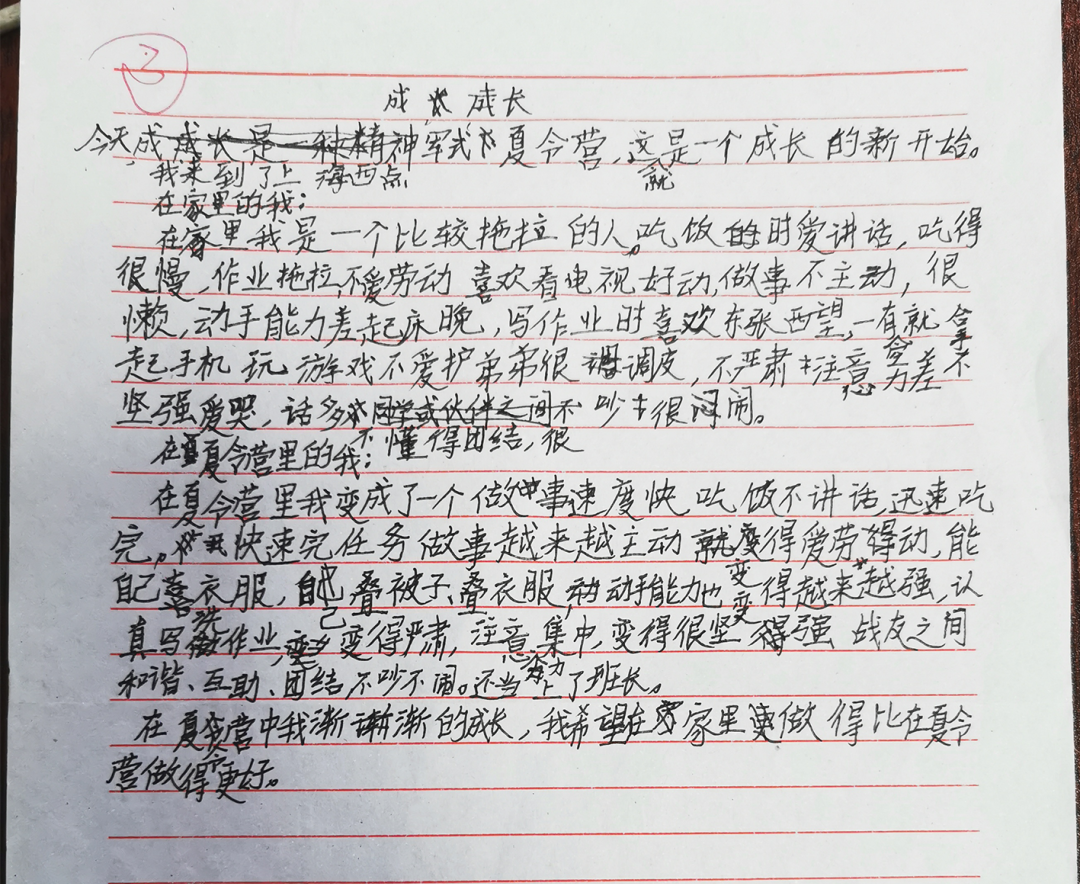 3
成长
今天,成成长是一种精神军式夏令营,这是一个成长的新开始。
我来到了上海西点
就
在家里的我:
在家里我是一个比较拖拉的人。吃饭的时爱讲话,吃得
很慢,作业拖拉,不爱劳动 喜欢看电视好动,做事不主动,很
懒,动手能力差,起床晚,写作业时喜欢东张西望,一有就拿
起手机玩游戏不爱护弟弟很调皮,不严肃注意力差不
坚强爱哭,话多同学或伙伴之间不吵很闷闹。
不懂得团结,很
在夏令营里的我:
在夏令营里我变成了一个做事速度快 吃饭不讲话 迅速吃
完。快速完任务做事越来越主动就变得爱劳得动,能
自己喜衣服,自己叠被子、叠衣服,动手能力也变得越来越强,认
洗
真写作业,变得严肃,注意集中,变得很坚强 战友之间
力
和谐、互助、团结,不吵不闹。还当上了班长。
在夏令营中我渐渐的成长,我希望在家里做得比在夏令
营做得更好。